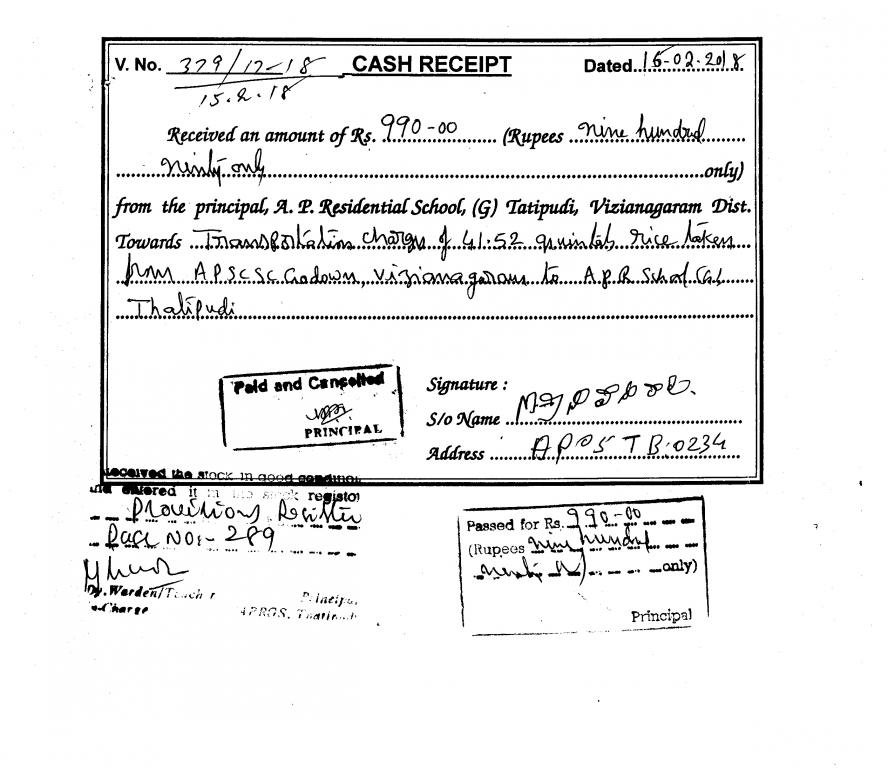 V. No. 379/17-18 CASH RECEIPT Dated..15-02-2018
15.2.18
Received an amount of Rs. 990-00 (Rupees nine hundred
ninty only only)
from the principal, A. P. Residential School, (G) Tatipudi, Vizianagaram Dist.
Towards Transportation charges of 41.52 quintals rice taken
from APSCSC Godown, Vizianagaram to A.P.R School (G)
Thatipudi
Paid and Cancelled
PRINCIPAL
Signature :
S/o Name
Address APOSTB:0234
Received the stock in good condition
and entered it in the stock register
Provisions Register
Page No:- 289
Dy. Warden/Teacher Principal
In-Charge APRGS, Thatipudi
Passed for Rs. 990-00
(Rupees nine hundred
only)
Principal